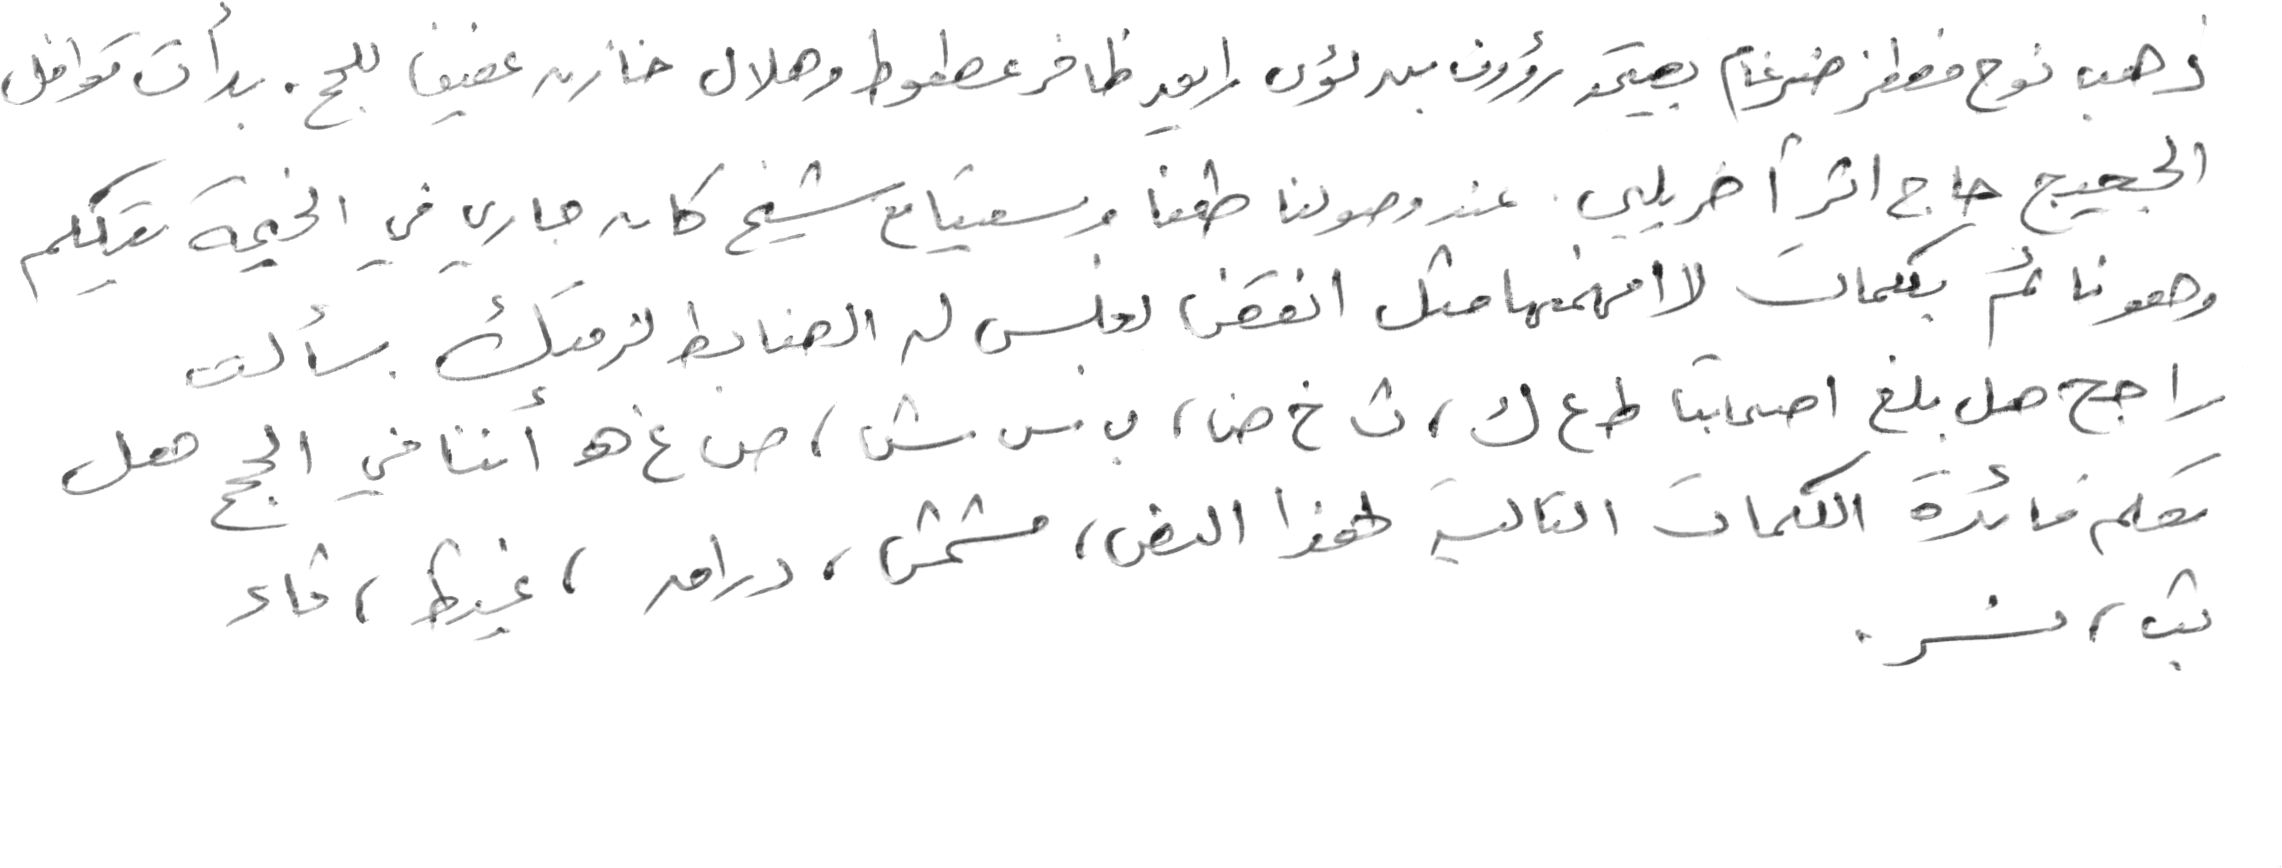 ذهب نوح مظفر ضرغام بصحبة رؤوف بدر لؤي رايد ظافر عطعوط وهلال خازن عفيف للحج. بدأت قوافل
الحجيج حاج اثر أخر يلبي. عند وصولنا طفنا وسعينا مع شيخ كان جاري في الخيمة يتكلم
وهو نائم بكلمات لا افهمها مثل انقض لعلس له الضابط لزمتك. سألت
راجح هل بلغ اصحابنا ط ع ك، ث خ ض، ب س ش، ص غ هـ أننا في الحج هل
تعلم فائدة الكلمات التالية لهذا النص، مشمش، درامه، غيظ، ثاء
بث، نسر.